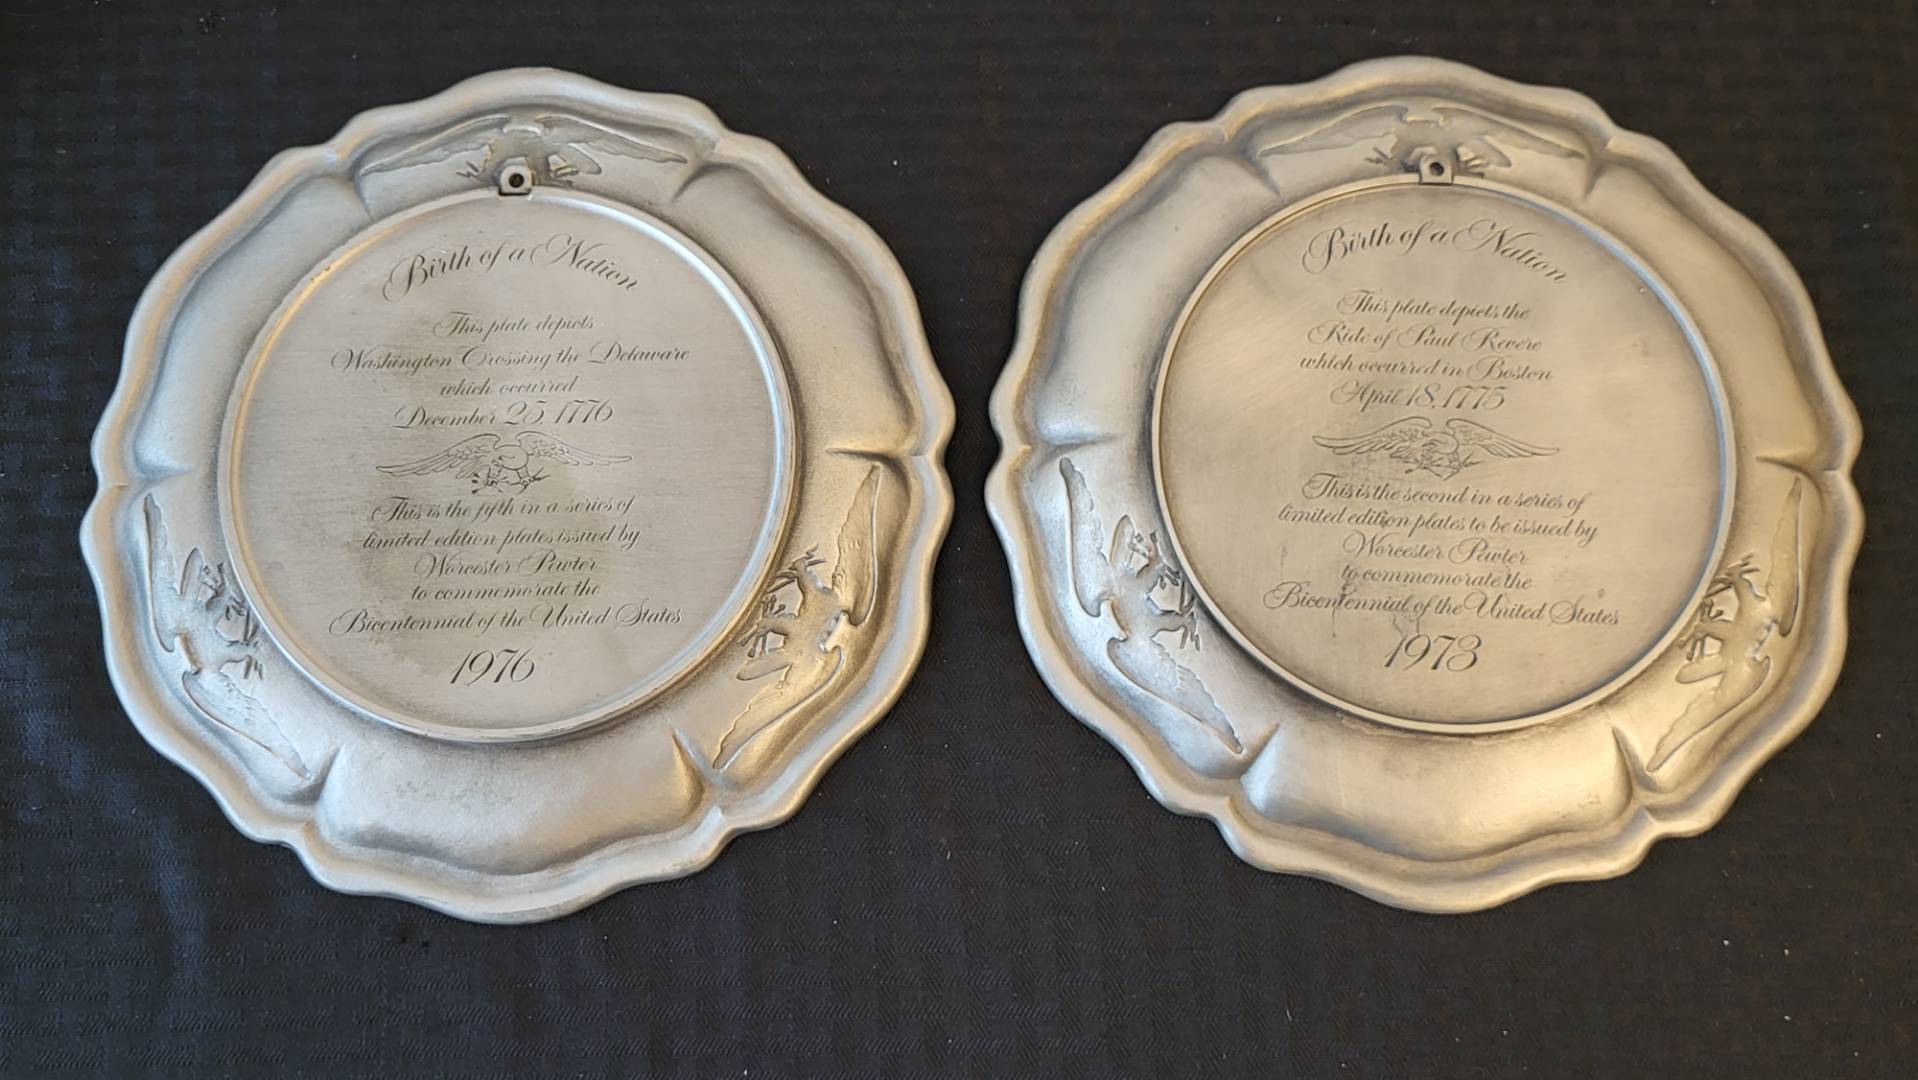 Birth of a Nation
This plate depicts
Washington Crossing the Delaware
which occurred
December 25, 1776
This is the fifth in a series of
limited edition plates issued by
Worcester Pewter
to commemorate the
Bicentennial of the United States
1976
Birth of a Nation
This plate depicts the
Ride of Paul Revere
which occurred in Boston
April 18, 1775
This is the second in a series of
limited edition plates to be issued by
Worcester Pewter
to commemorate the
Bicentennial of the United States
1973